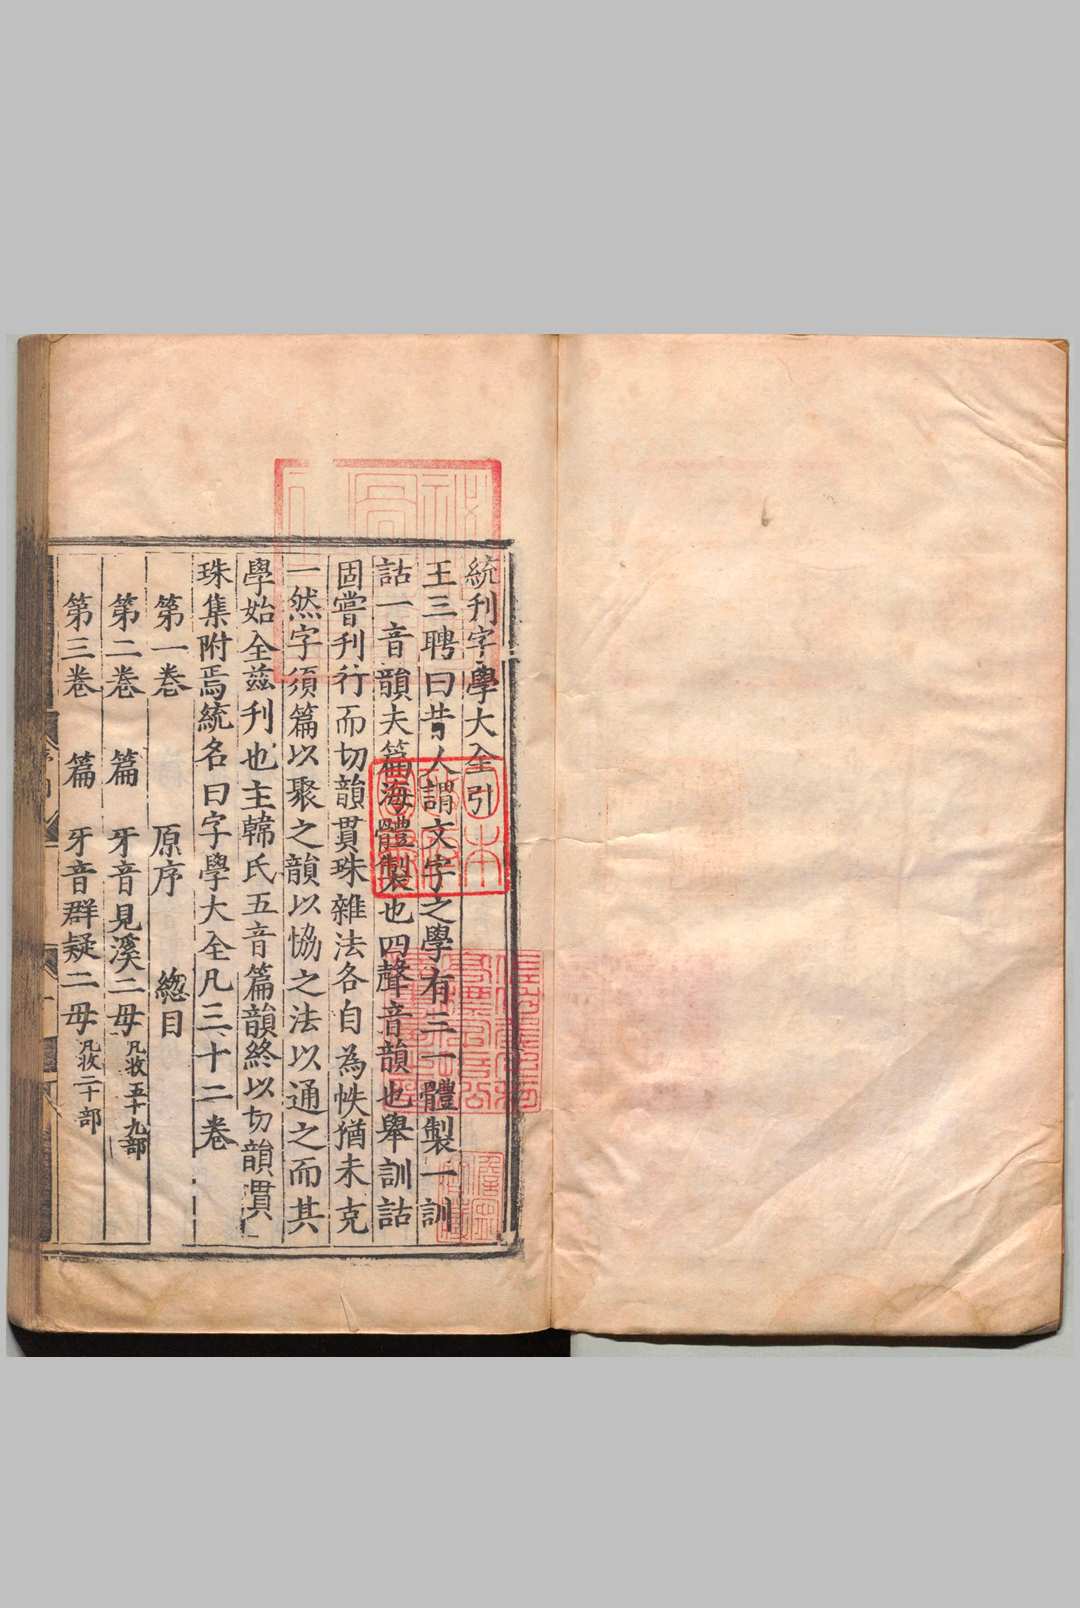 統刊字學大全引
王三聘曰昔人謂文字之學有三一體製一訓
詁一音韻夫篇海體製也四聲音韻也舉訓詁
固嘗刊行而切韻貫珠雜法各自為帙猶未克
一然字須篇以聚之韻以恊之法以通之而其
學始全茲刊也主韓氏五音篇韻終以切韻貫
珠集附焉統名曰字學大全凡三十二卷
第一卷 原序 緫目
第二卷 篇 牙音見溪二母 凡收五十九部
第三卷 篇 牙音群疑二母 凡收二十部